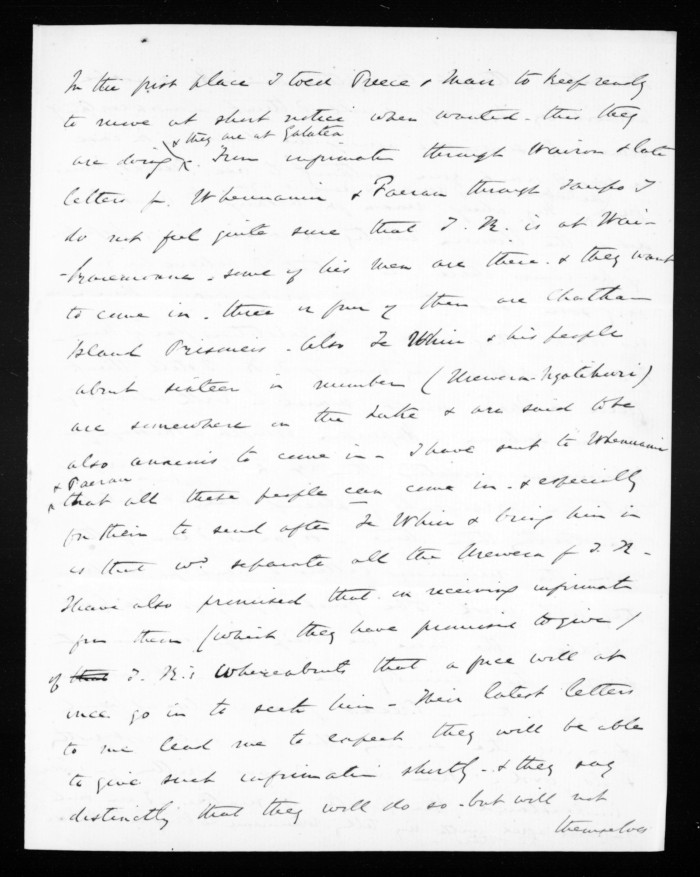 In the first place I told Preece & Mair to keep ready
to move at short notice when wanted - this they
& they are at Galatea
are doing. From information through Wairoa & late
letters fr. Whenuanui & Paerau through Taupo I
do not feel quite sure that T. K. is at Wai-
-karemoana - some of his men are there - & they want
to come in - three or four of them are Chatham
Island Prisoners - Also Te Whiu & his people
about sixteen in number (Urewera - Ngatihuri)
are somewhere in the Lake & are said to be
also anxious to come in - I have sent to Whenuanui
& Paerau
that all these people can come in - & especially
for them to send after Te Whiu & bring him in
as that wd. separate all the Urewera f T. K. -
I have also promised that on receiving informatn
from them (which they have promised to give)
of that T. K's whereabouts that a force will at
once go in to seek him - Their latest letters
to me lead me to expect they will be able
to give such information shortly - & they say
distinctly that they will do so - but will not
themselves